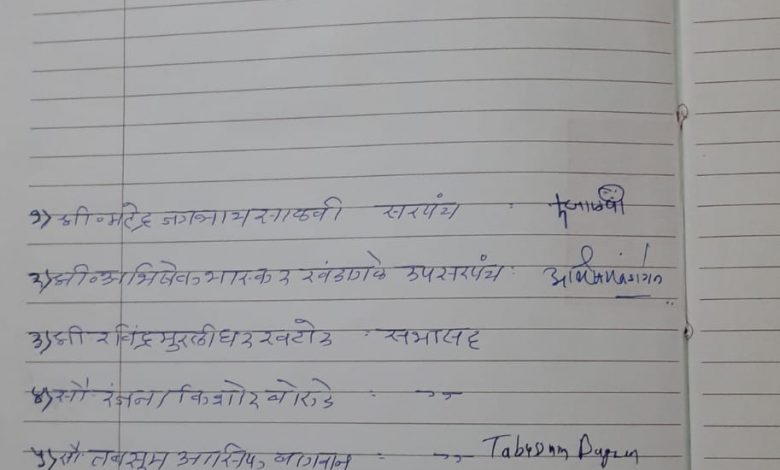 १) श्री. महेंद्र जगन्नाथ साळवी सरपंच :
२) श्री. अभिषेक भास्कर खंडागळे उपसरपंच :
३) श्री रविंद्र मुरलीधर खटोड : सभासद
४) सौ रंजना किशोर बोरुडे : ——〃——
५) सौ तबसूम आसिफ बागवान : ——〃—— Tabusum